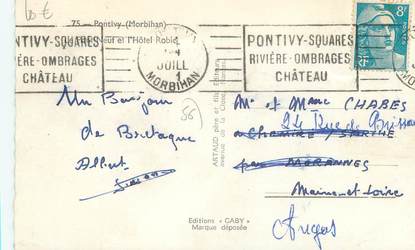 10 €
75 - Pontivy (Morbihan)
Neuf et l'Hôtel Robic
PONTIVY-SQUARES
RIVIÈRE-OMBRAGES
CHÂTEAU
JUILL
1
MORBIHAN
PONTIVY-SQUARES
RIVIÈRE-OMBRAGES
CHÂTEAU
8F
Un Bonjour
de Bretagne
Albert
(56)
ARTAUD père et fils, Éditeurs
avenue de la Close, Nantes
Mr et Mme CHABES
24 Rue de Brissac
CHEMIRE SARTHE
par MORANNES
Maine-et-Loire
Angers
Editions "GABY"
Marque déposée